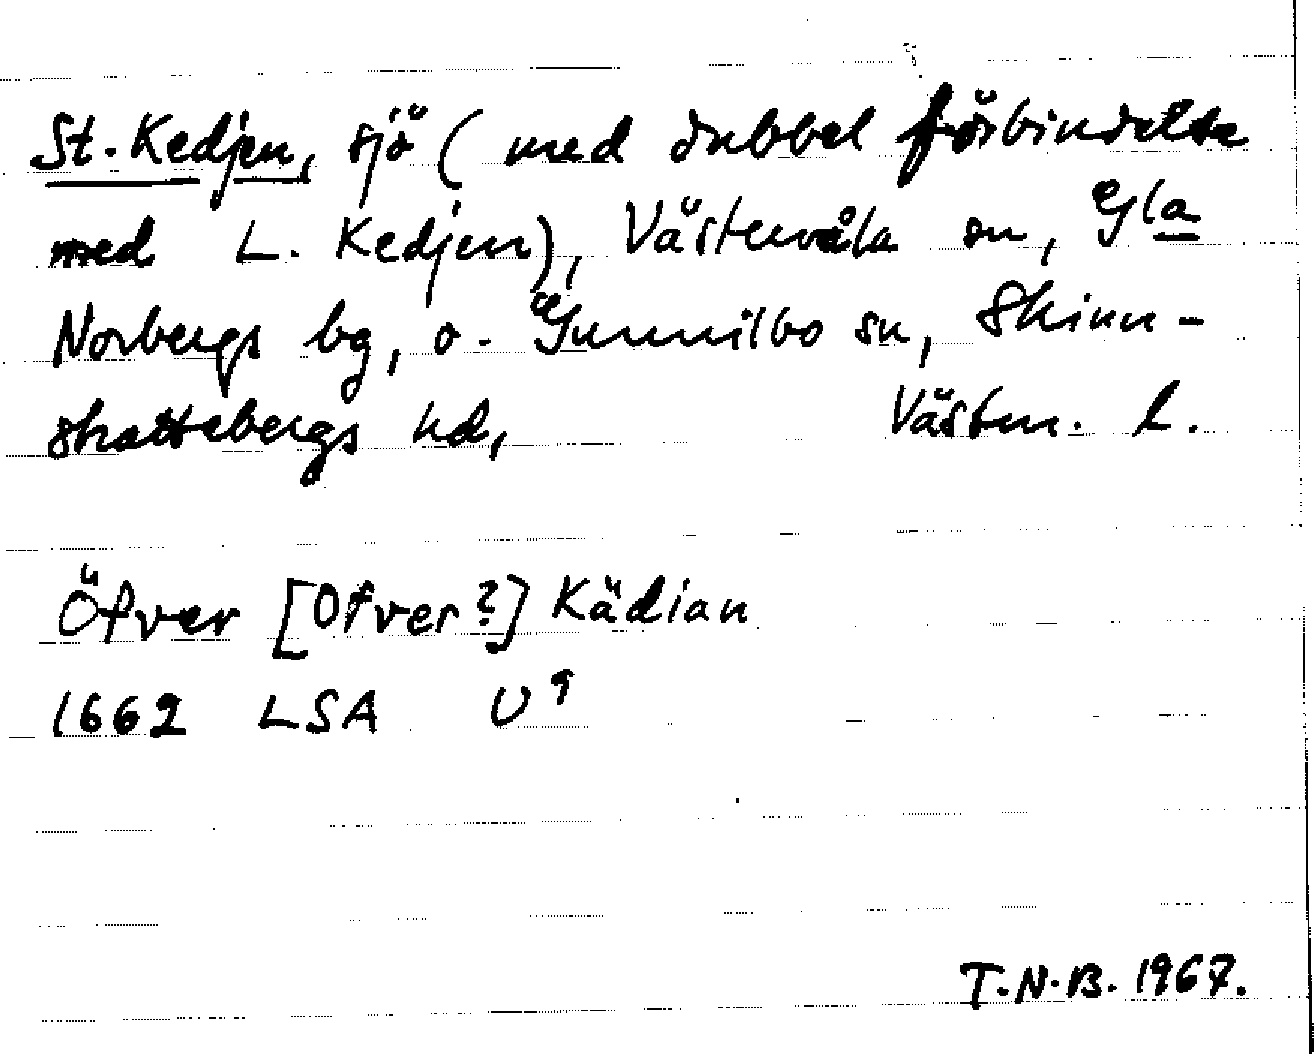 St. Kedjen, sjö (med dubbel förbindelse
med L. Kedjen), Västervåla sn, Gla
Norbergs bg, o. Gunnilbo sn, Skinn-
skattebergs hd, Västm. l.
Öfver [Ofver?] Kädian
1662 LSA U 9
T.N.B. 1967.